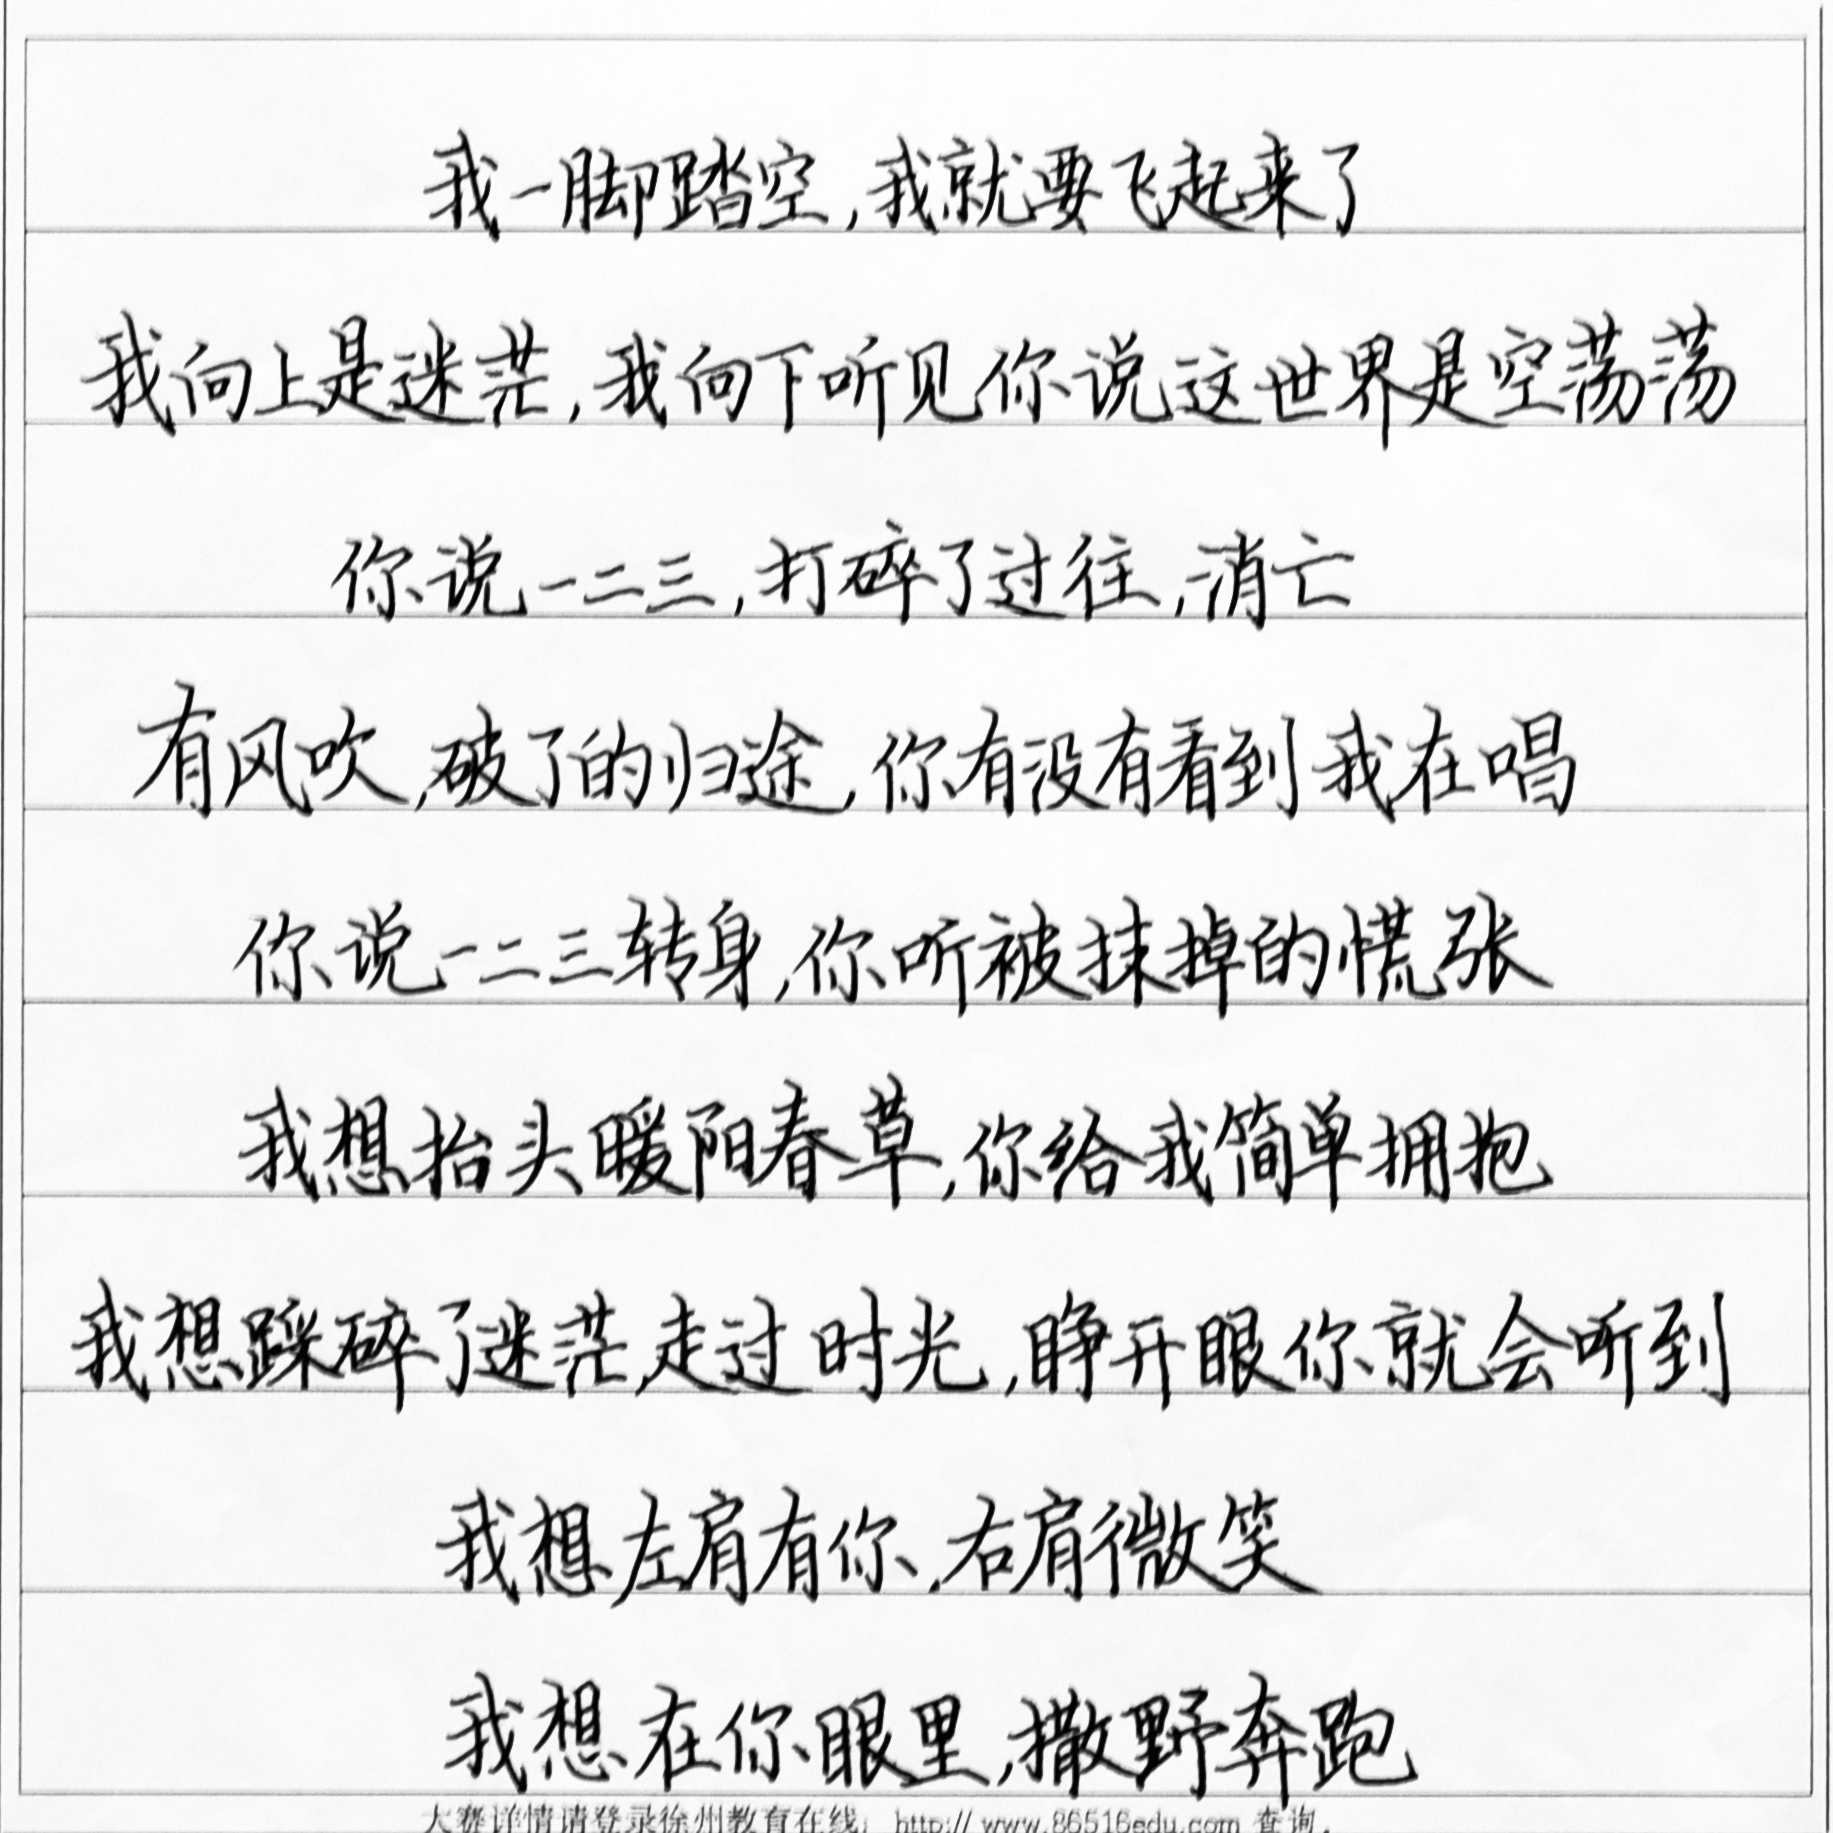 我一脚踏空,我就要飞起来了
我向上是迷茫,我向下听见你说这世界是空荡荡
你说一二三,打碎了过往,消亡
有风吹,破了的归途,你有没有看到我在唱
你说一二三转身,你听被抹掉的慌张
我想抬头暖阳春草,你给我简单拥抱
我想踩碎了迷茫,走过时光,睁开眼你就会听到
我想左肩有你,右肩微笑
我想在你眼里,撒野奔跑
大赛详情请登录徐州教育在线: http://www.86516edu.com 查询.